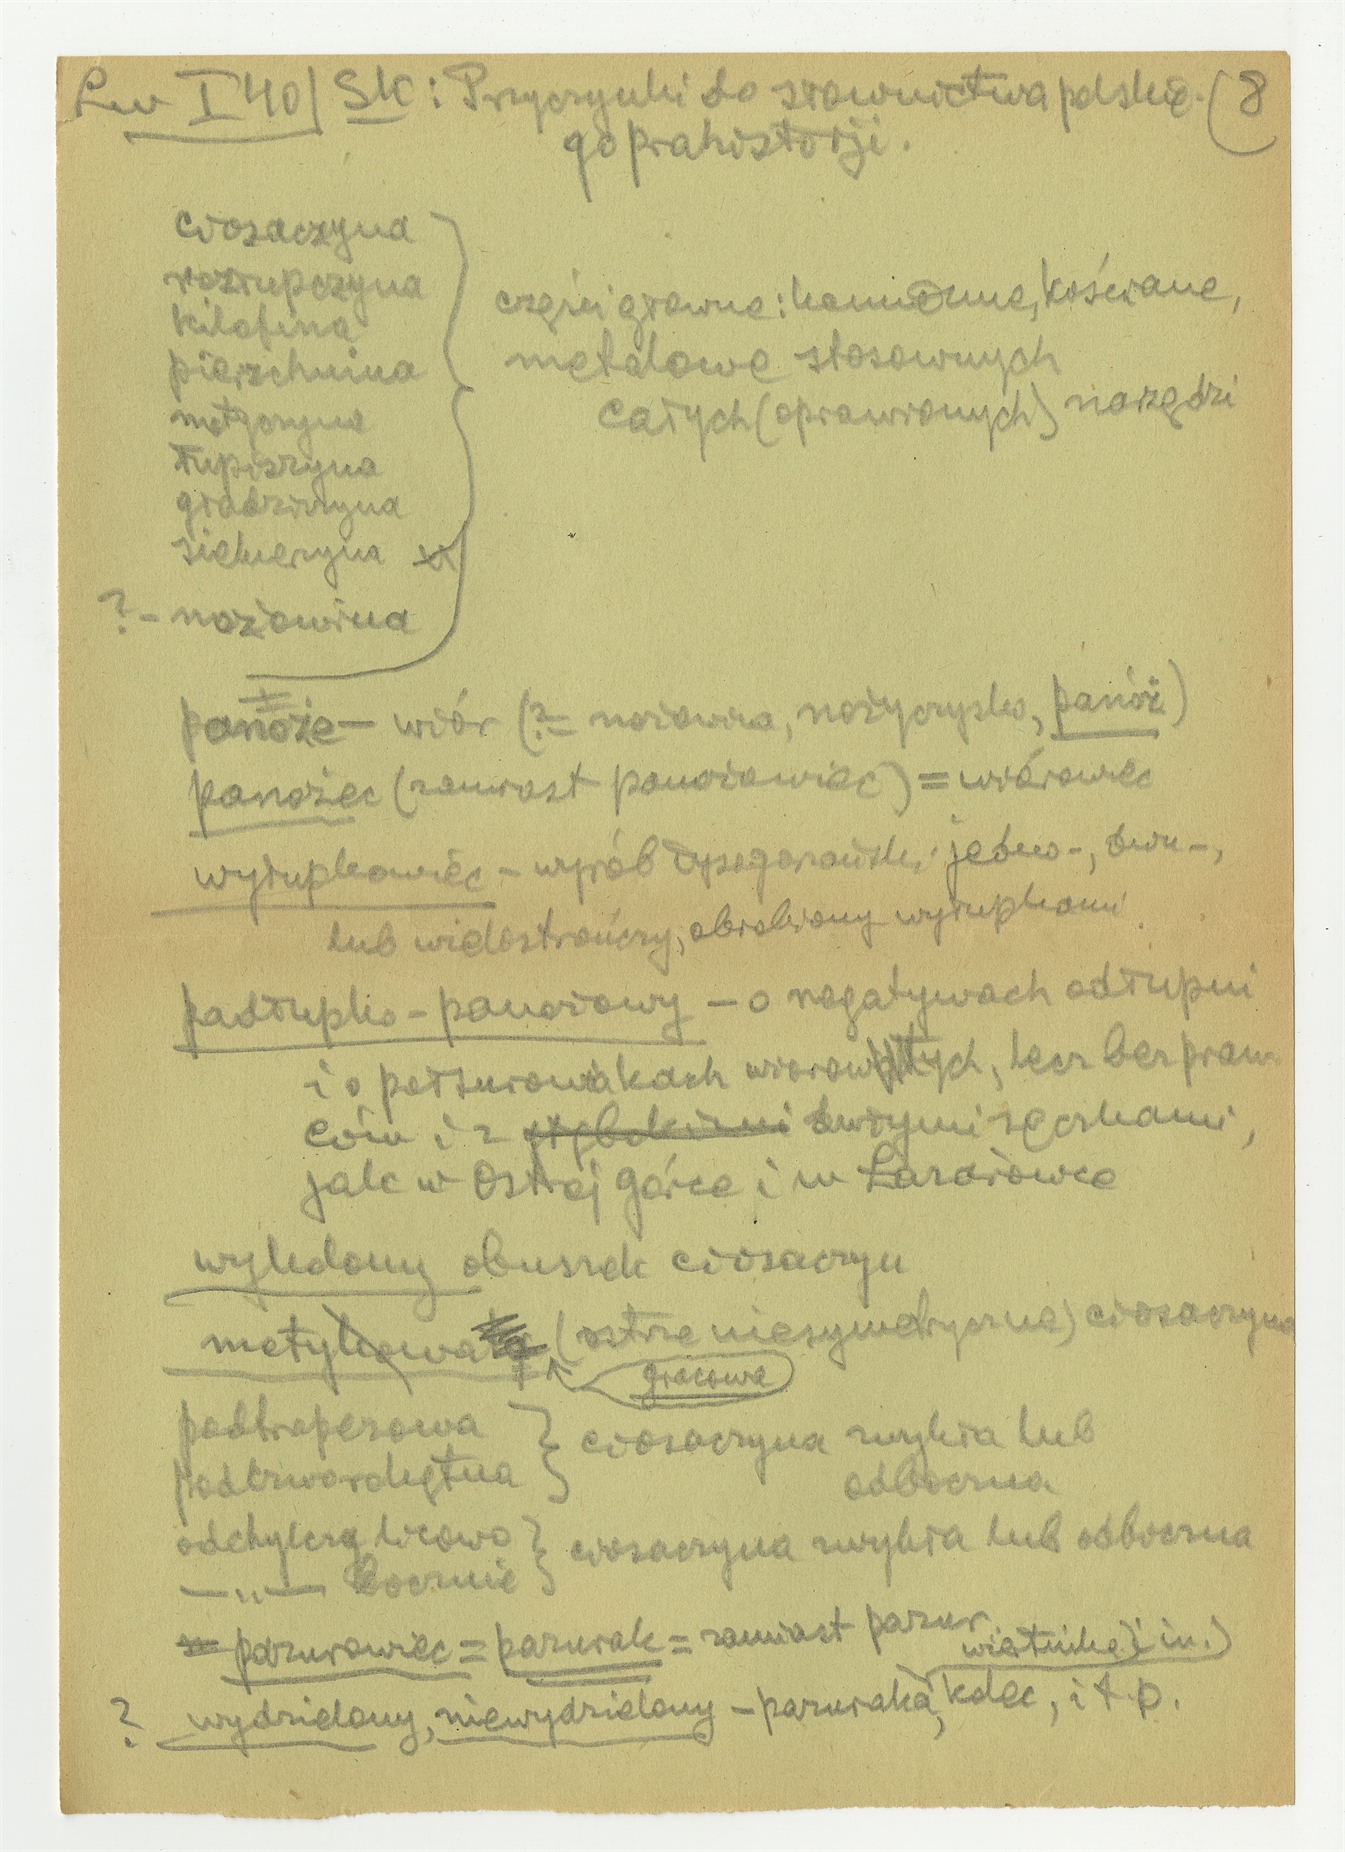 Lw I 40/ SK: Przyczynki do słownictwa polskie- (8
go prahistorji.
ciosaczyna
roztupczyna
kilofina
pierzchnina
motyczyna
łupiszyna
gładziszyna
siekierzyna
? - nożowina
części główne: kamienne, kościane,
metalowe stosownych
całych (oprawionych) narzędzi
panoże – wiór (?= nożowina, nożyczysko, panóż)
panożec (zamiast panożowiec) = wiórowiec
wyłupkowiec – wyrób łysogorański jedno-, dwu-,
lub wielostrończy, obrobiony wyłupkami.
padłupko-panożowy – o negatywach odłupni
i o półsurowiakach wiorowatych, lecz bez praw
ców i z głębokimi dużymi sęczkami,
jak w Ostrej górce i w Łazarówce
wyledony obuszek ciosaczyn
motykowata (ostrze niesymetryczne) ciosaczyna
gracowa
podtrapezowa
podczworokątna
ciosaczyna zwykła lub
odboczna
odchylczą licowo
—„— bocznie
ciosaczyna zwykła lub odboczna
pazurowiec = pazurak = zamiast pazur
wiatnika) i in.)
? wydzielony, niewydzielony – pazuraka, kolec, i t.p.